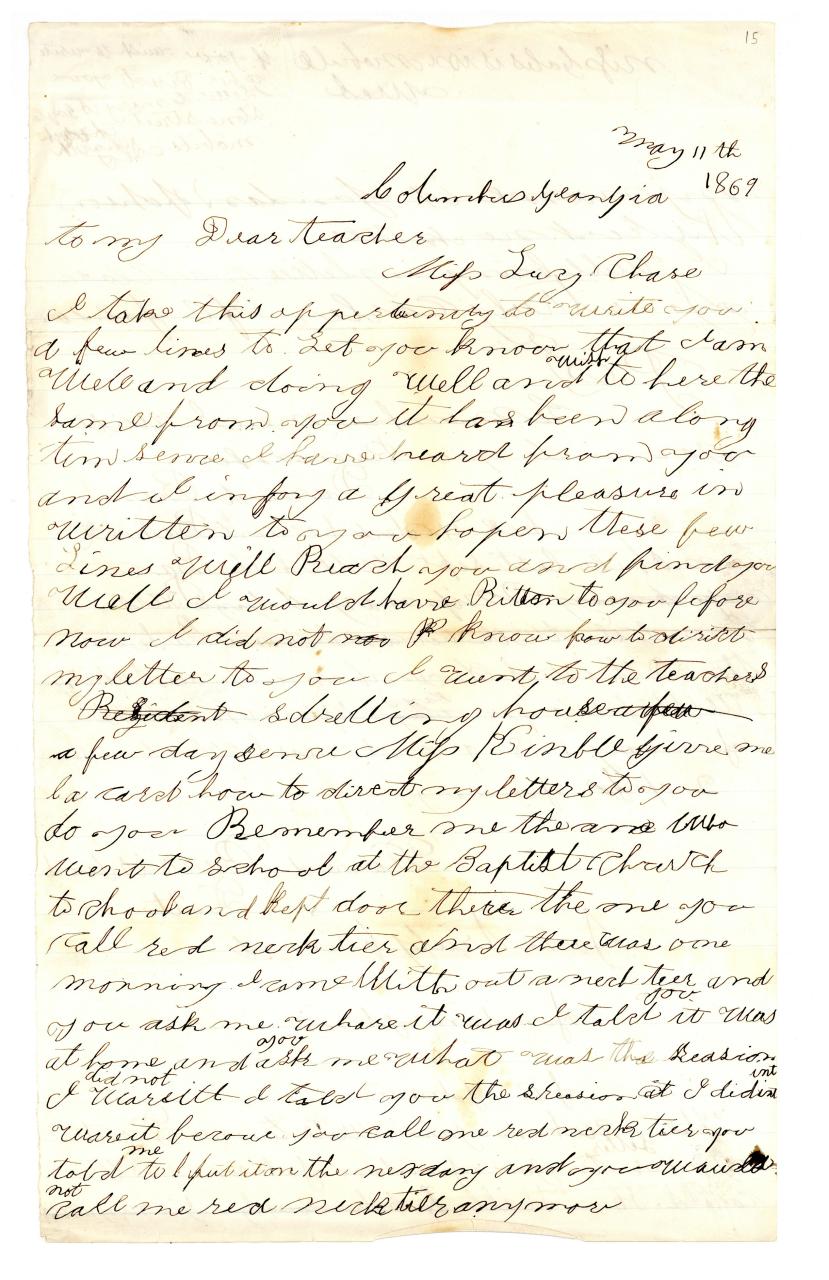 15
May 11th
1869
Columbus Georgia
to my Dear teacher
Miss Lucy Chase
I take this oppertunity to write you
a few lines to Let you know that I am
Well and doing Well and wish to here the
same from you it has been along
tim sence I have heard from you
and I injoy a Great pleasure in
written to you hopen these few
Lines Will Reach you and find you
Well I would have Ritten to you before
now I did not know how to dirict
my letter to you I went to the teachers
Resident dwelling house a few
a few day sence Miss Kinble give me
a card how to direct my letters to you
do you Remember me the one Who
went to school at the Baptist Church
to chool and kept door there the me you
call red neck tier and there was one
morning I came With out a neck teer and
you ask me whare it was I told you it was
at home and you ask me what was the Reasion
I did not War it I told you the reasion at I didint
ware it becoue you call me red neck tier you
told me to put it on the nex day and you would
not call me red neck tier any more